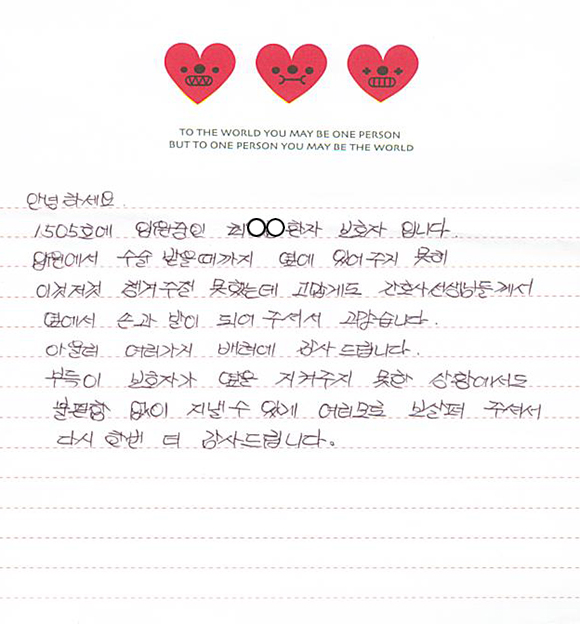 TO THE WORLD YOU MAY BE ONE PERSON
BUT TO ONE PERSON YOU MAY BE THE WORLD
안녕하세요.
1505호에 입원중인 최○○환자 보호자 입니다.
입원에서 수술 받을때까지 옆에 있어주지 못해
이것저것 챙겨주질 못했는데 고맙게도 간호사선생님들께서
옆에서 손과 발이 되어 주셔서 고맙습니다.
아울러 여러가지 배려에 감사 드립니다.
부득이 보호자가 옆을 지켜주지 못한 상황에서도
불편함 없이 지낼수 있게 여러모로 보살펴 주셔서
다시 한번 더 감사드립니다.